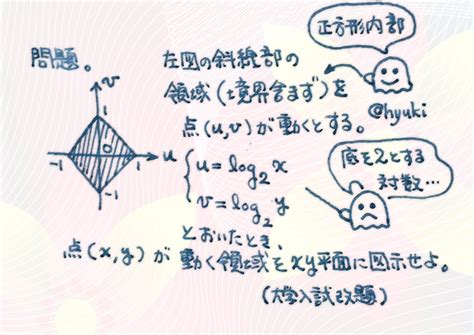 正方形内部
問題。
左図の斜線部の
領域(境界含まず)を
@hyuki
点(u,v)が動くとする。
v
1
-1
0
1
u
-1
u = log₂ x
v = log₂ y
底を2とする
対数…
とおいたとき、
点(x,y)が動く領域をxy平面に図示せよ。
(大学入試改題)